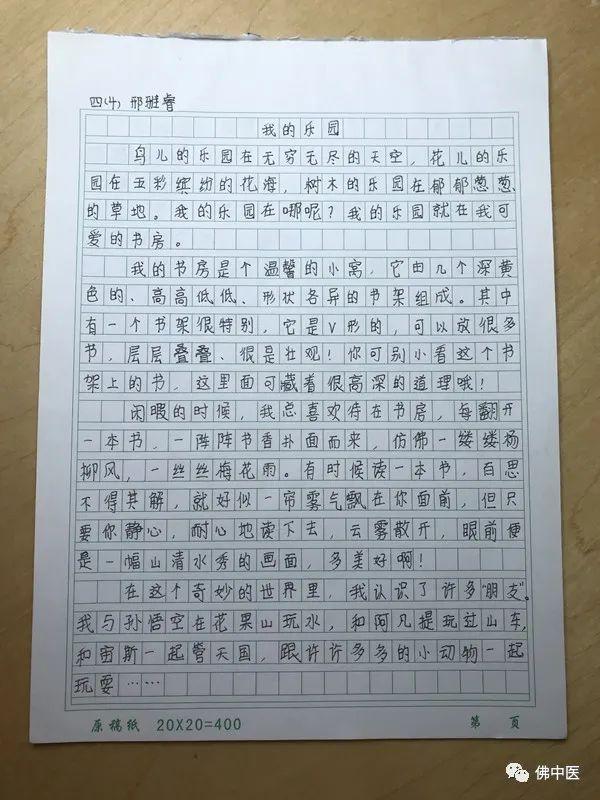 四(4) 邢琎睿
我的乐园
鸟儿的乐园在无穷无尽的天空，花儿的乐
园在五彩缤纷的花海，树木的乐园在郁郁葱葱
的草地。我的乐园在哪呢？我的乐园就在我可
爱的书房。
我的书房是个温馨的小窝，它由几个深黄
色的、高高低低、形状各异的书架组成。其中
有一个书架很特别，它是V形的，可以放很多
书，层层叠叠、很是壮观！你可别小看这个书
架上的书，这里面可藏着很高深的道理哦！
闲暇的时候，我总喜欢待在书房，每翻开
一本书，一阵阵书香扑面而来，仿佛一缕缕杨
柳风，一丝丝梅花雨。有时候读一本书，百思
不得其解，就好似一帘雾气飘在你面前，但只
要你静心，耐心地读下去，云雾散开，眼前便
是一幅山清水秀的画面，多美好啊！
在这个奇妙的世界里，我认识了许多“朋友”。
我与孙悟空在花果山玩水，和阿凡提玩过山车，
和宙斯一起管天国，跟许许多多的小动物一起
玩耍……
原稿纸 20X20=400 第 页
佛中医